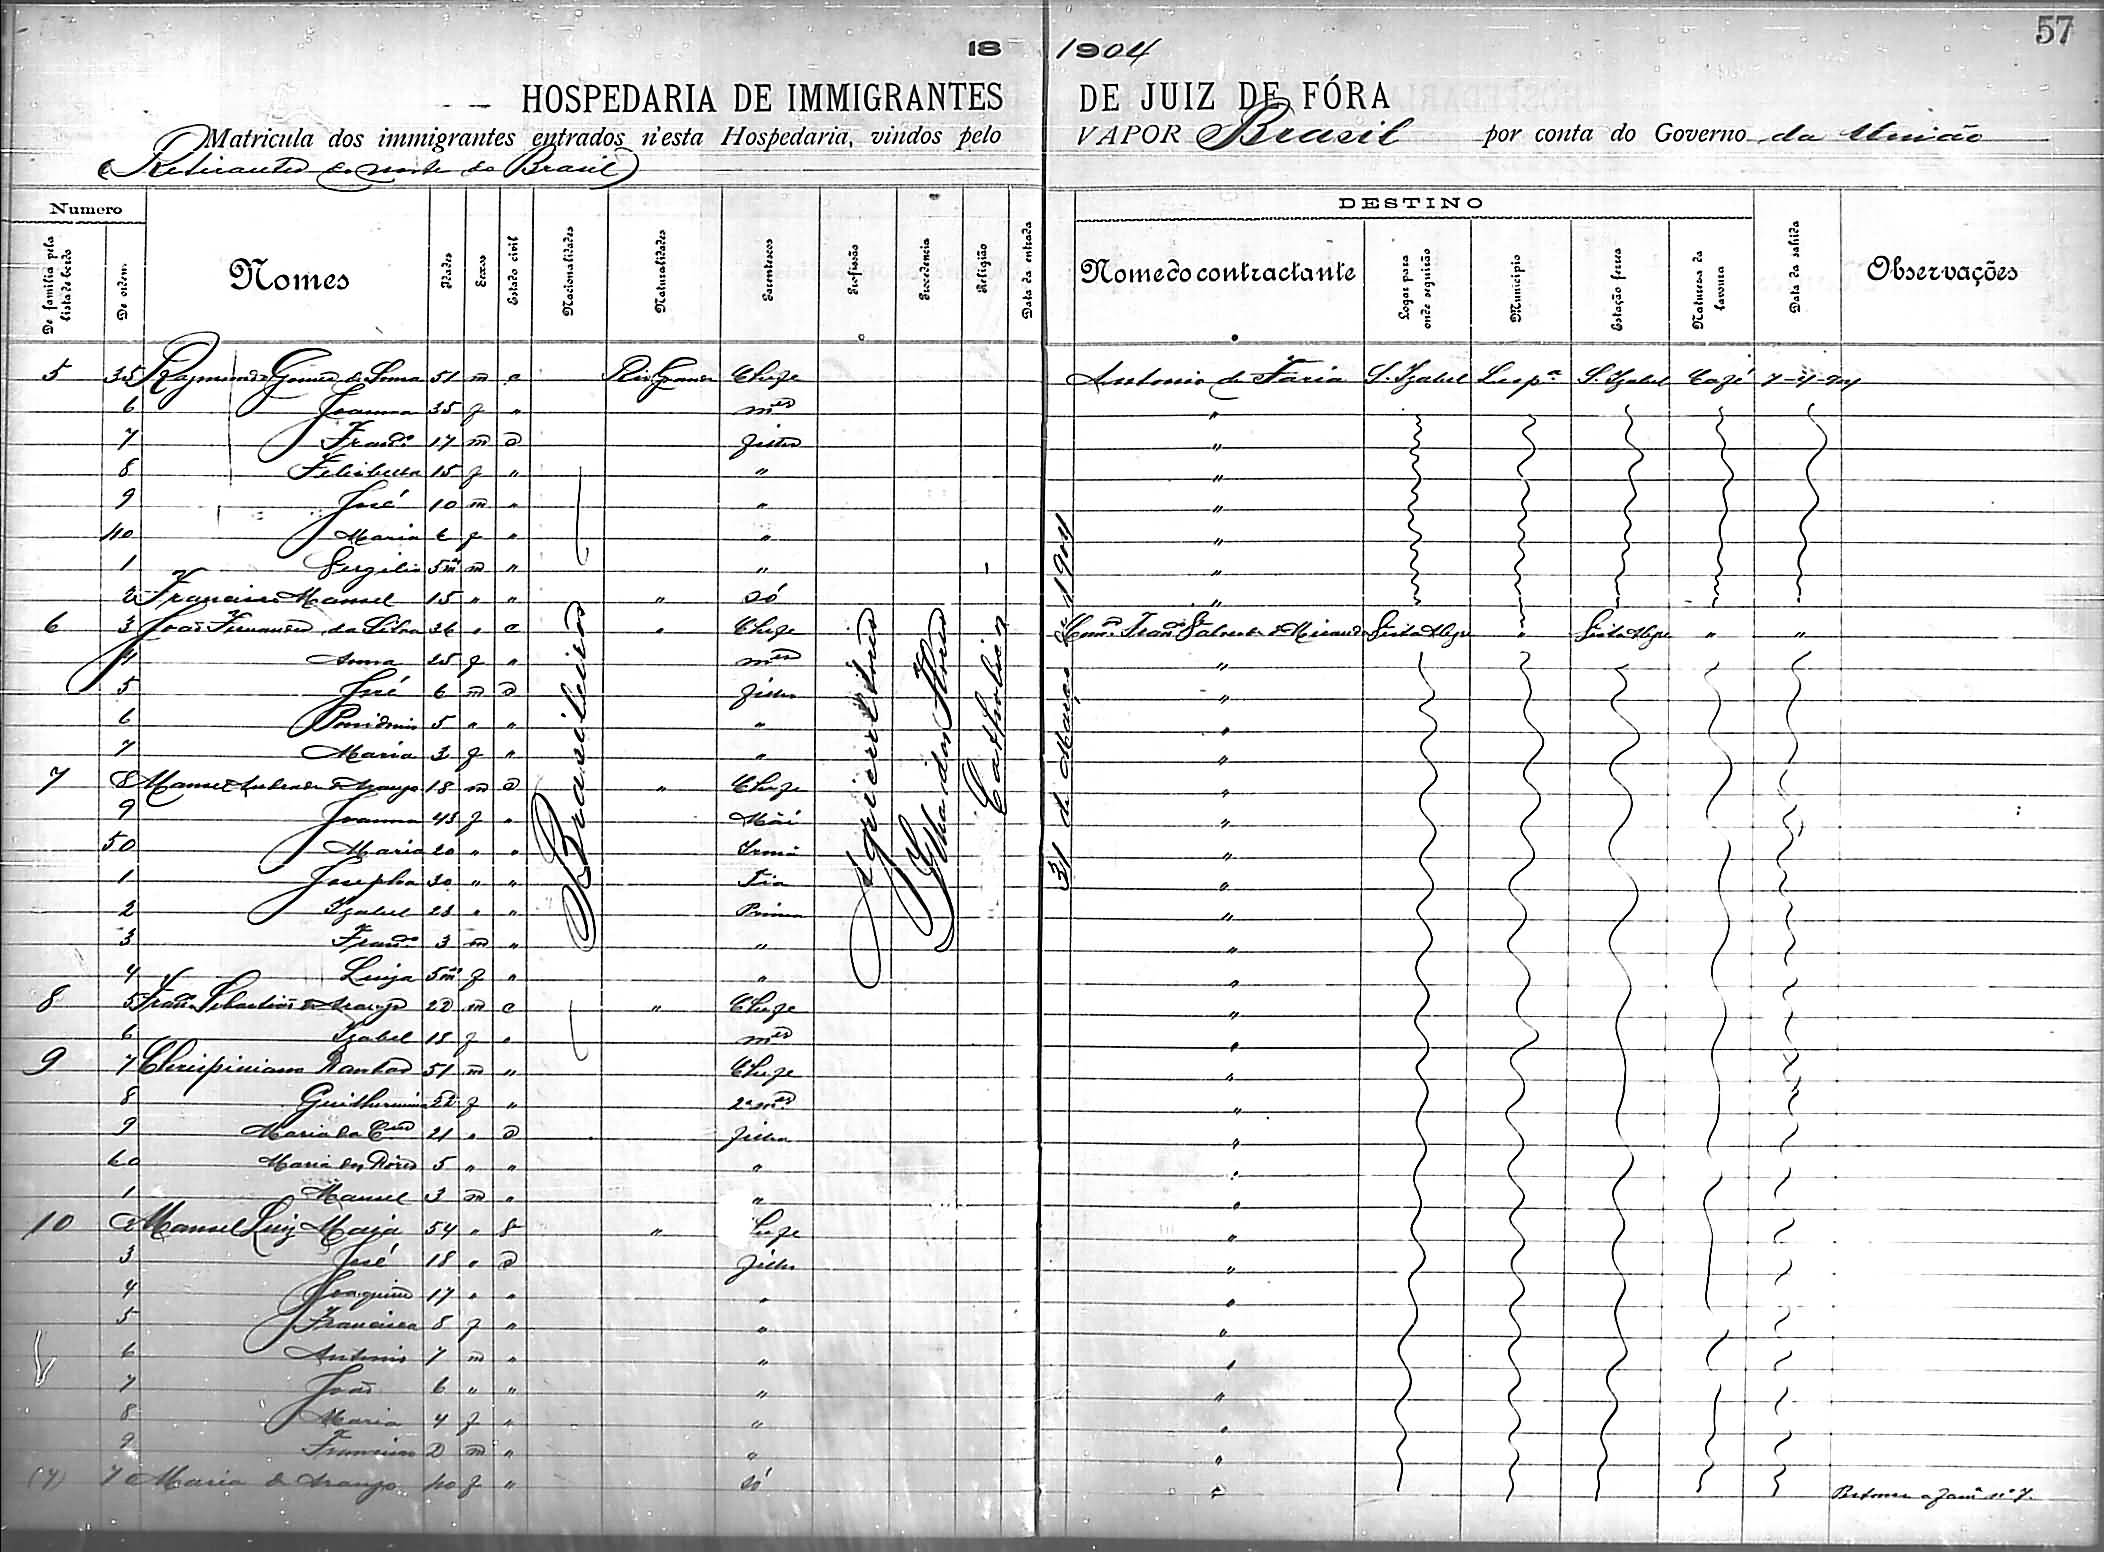 57
18 1904
HOSPEDARIA DE IMMIGRANTES DE JUIZ DE FÓRA
Matricula dos immigrantes entrados n'esta Hospedaria, vindos pelo VAPOR Brasil por conta do Governo da União
(Retirantes do norte do Brasil)
Numero DESTINO
De familia pela lista de bordo De ordem Nomes Idades Sexos Estado civil Nacionalidades Naturalidades Parentescos Profissão Procedencia Religião Data da entrada Nome do contractante Logar para onde seguirão Municipio Estação ferrea Natureza da lavoura Data da sahida Observações
5 35 Raymundo Gomes de Lima 51 m c Rio Grande Chefe Antonio de Faria S. Izabel Leop.a S. Izabel Café 7-4-904
6 Joanna 35 f " mer "
7 Franco 17 m s filho "
8 15 f " " "
9 José 10 m " " "
40 Maria 6 f " " "
1 5m m " " "
2 Francisco Manuel 15 " " " só "
6 3 João Fernandes da Silva 36 " c " Chefe Vista Alegre " Vista Alegre " "
4 Anna 25 f " mer "
5 José 6 m s filho "
6 5 " " " "
7 Maria 3 f " " "
7 8 Manuel Andrade de Araujo 18 m s " Chefe "
9 Joanna 45 f " Mãi "
50 Maria 20 " " Irmã "
1 Josepha 30 " " Tia "
2 Izabel 23 " " Prima "
3 Franco 3 m " " "
4 Luiza 5m f " " "
8 5 Franco Sebastião de Araujo 22 m c " Chefe "
6 Izabel 18 f " mer "
9 7 Chrispiniano 51 m " Chefe "
8 Guilhermina 22 f " 2a mer "
9 Maria da 21 " s filha "
60 Maria das Dôres 5 " " " "
1 Manuel 3 m " " "
10 2 Manuel Luiz Maia 54 " " Chefe "
3 José 18 " s filho "
4 Joaquim 17 " " " "
5 Francisca 8 f " " "
6 Antonio 7 m " " "
7 João 6 " " " "
8 Maria 4 f " " "
9 Francisco 2 m " " "
(7) 70 Maria de Araujo 40 f " só " Pertence a fam.a n.o 7.
Brasileiros
Agricultores
Ilha das Flores
Catholica
31 de Março de 1904